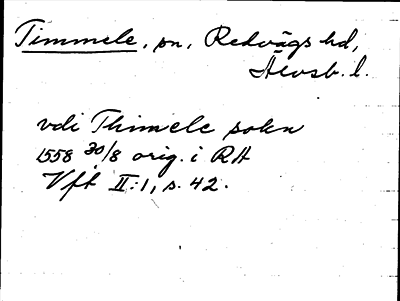 Timmele, sn, Redvägs hd,
Älvsb. l.
vdi Thimele sokn
1558 30/8 orig. i RA
Vft II:1, s. 42.